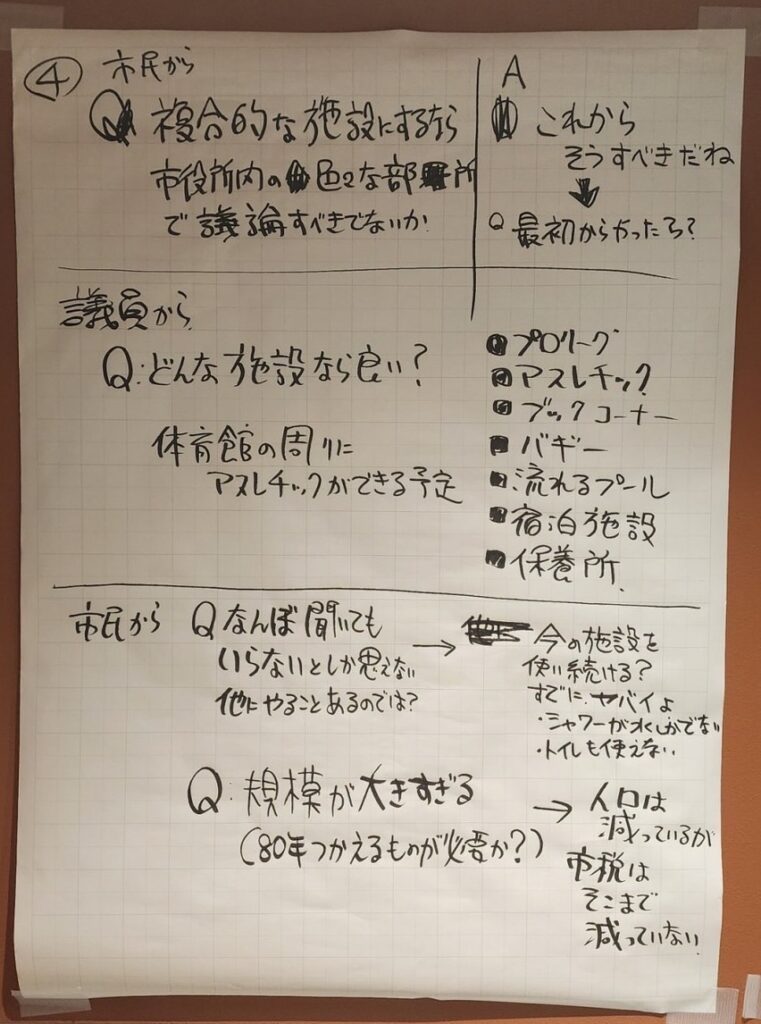 ④ 市民から
Q 複合的な施設にするなら
市役所内の色々な部所
で議論すべきでないか
A
これから
そうすべきだね
↓
Q 最初からやったろ?
議員から
Q:どんな施設なら良い?
体育館の周りに
アスレチックができる予定
プロリーグ
アスレチック
ブックコーナー
バギー
流れるプール
宿泊施設
保養所
市民から Q なんぼ聞いても
いらないとしか思えない
他にやることあるのでは?
→ 今の施設を
使い続ける?
すでにヤバイよ
・シャワーが水しかでない
・トイレも使えない
Q:規模が大きすぎる
(80年つかえるものが必要か?)
→ 人口は
減っているが
市税は
そこまで
減っていない